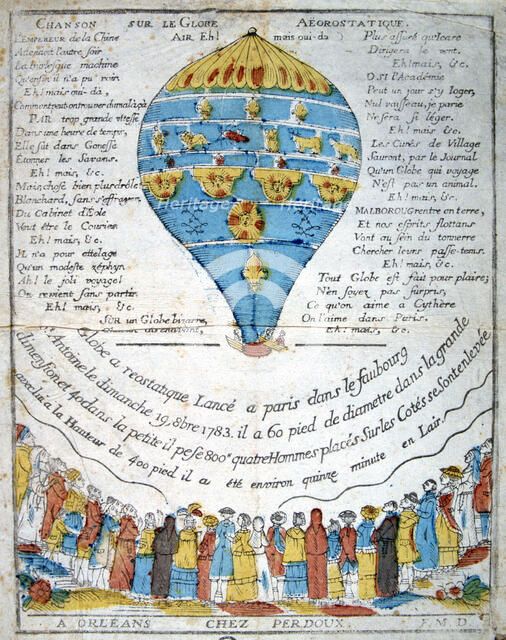 CHANSON SUR LE GLOBE AÉOROSTATIQUE.
AIR Eh! mais oui-da
L'EMPEREUR de la Chine
Attendoit l'autre soir
La burlesque machine
Qu'enfin il n'a pu voir.
Eh! mais oui-dà,
Comment peut-on trouver du mal à çà
PAR trop grande vitesse
Dans une heure de temps,
Elle fut dans Gonesse
Etonner les Savans.
Eh! mais, &c.
Mais, chose bien plus drôle!
Blanchard, sans s'effrayer,
Du Cabinet d'Eole
Veut être le Coursier.
Eh! mais, &c.
IL n'a pour attelage
Qu'un modeste zéphyr,
Ah! le joli voyage!
On revient sans partir.
Eh! mais, &c.
SUR un Globe bizarre,
Plus assuré qu'Icare
Dirigera le vent.
Eh! mais, &c.
O SI l'Académie
Peut un jour s'y loger,
Nul vaisseau, je parie
Ne sera si léger.
Eh! mais, &c.
Les Curés de Village
Sauront, par le Journal
Qu'un Globe qui voyage
N'est pas un animal.
Eh! mais, &c.
MALBOROUG rentre en terre,
Et nos esprits flottans
Vont au sein du tonnerre
Chercher leurs passe-tems.
Eh! mais, &c.
Tout Globe est fait pour plaire;
N'en soyez pas surpris,
Ce qu'on aime a Cythère
On l'aime dans Paris.
Eh! mais, &c.
Globe a reostatique Lancé a paris dans le faubourg
St Antoine le dimanche 19, 8bre 1783. il a 60 pied de diametre dans la grande
dimension et 40 dans la petite il pese 800# quatre Hommes placés Sur les Cotés se Sont enlevée
avec lui a la Hauteur de 400 pied il a été environ quinze minute en Lair.
A ORLÉANS CHEZ PERDOUX. F. M. D.
Heritage